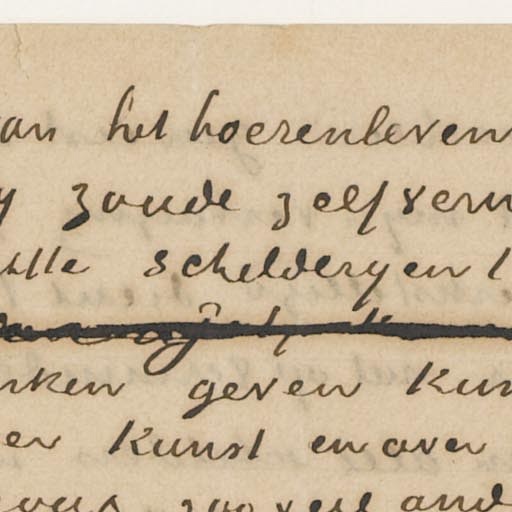 an het boerenleven
y zoude zelf verw
ulle schilderyen
nken geven kun
er kunst en over
zooveel and